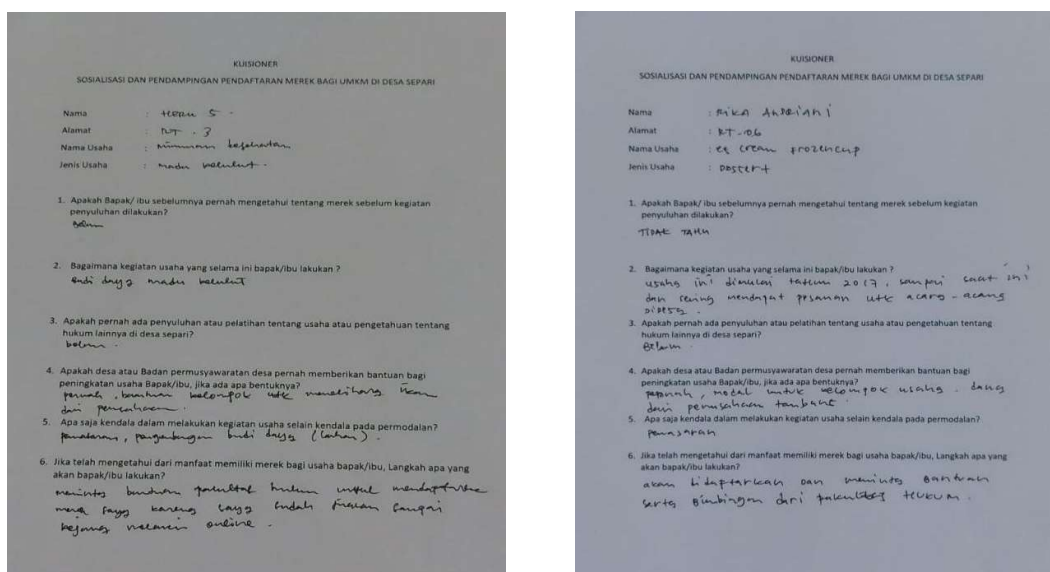 KUISIONER
SOSIALISASI DAN PENDAMPINGAN PENDAFTARAN MEREK BAGI UMKM DI DESA SEPARI
Nama :
Alamat : RT . 3
Nama Usaha : minuman kesehatan
Jenis Usaha : madu kelulut .
1. Apakah Bapak/ ibu sebelumnya pernah mengetahui tentang merek sebelum kegiatan
penyuluhan dilakukan?
Belum
2. Bagaimana kegiatan usaha yang selama ini bapak/ibu lakukan ?
Budi daya madu kelulut
3. Apakah pernah ada penyuluhan atau pelatihan tentang usaha atau pengetahuan tentang
hukum lainnya di desa separi?
belum .
4. Apakah desa atau Badan permusyawaratan desa pernah memberikan bantuan bagi
peningkatan usaha Bapak/ibu, jika ada apa bentuknya?
pernah , bantuan kelompok utk memelihara ikan
dari perusahaan .
5. Apa saja kendala dalam melakukan kegiatan usaha selain kendala pada permodalan?
pemasaran , pengembangan budi daya (lahan) .
6. Jika telah mengetahui dari manfaat memiliki merek bagi usaha bapak/ibu, Langkah apa yang
akan bapak/ibu lakukan?
meminta bantuan pakultas hukum untuk
saya karena saya sudah
online .
KUISIONER
SOSIALISASI DAN PENDAMPINGAN PENDAFTARAN MEREK BAGI UMKM DI DESA SEPARI
Nama : Rika Andriani
Alamat : RT . 06
Nama Usaha : es cream frozencup
Jenis Usaha :
1. Apakah Bapak/ ibu sebelumnya pernah mengetahui tentang merek sebelum kegiatan
penyuluhan dilakukan?
TIDAK TAHU
2. Bagaimana kegiatan usaha yang selama ini bapak/ibu lakukan ?
usaha ini dimulai tahun 2017 , sampai saat ini
dan sering mendapat pesanan utk acara - acara
didesa .
3. Apakah pernah ada penyuluhan atau pelatihan tentang usaha atau pengetahuan tentang
hukum lainnya di desa separi?
Belum .
4. Apakah desa atau Badan permusyawaratan desa pernah memberikan bantuan bagi
peningkatan usaha Bapak/ibu, jika ada apa bentuknya?
modal untuk kelompok usaha . dana
dari perusahaan tambang .
5. Apa saja kendala dalam melakukan kegiatan usaha selain kendala pada permodalan?
pemasaran
6. Jika telah mengetahui dari manfaat memiliki merek bagi usaha bapak/ibu, Langkah apa yang
akan bapak/ibu lakukan?
akan Didaptarkan dan meminta Bantuan
serta Bimbingan dari pakultas Hukum .